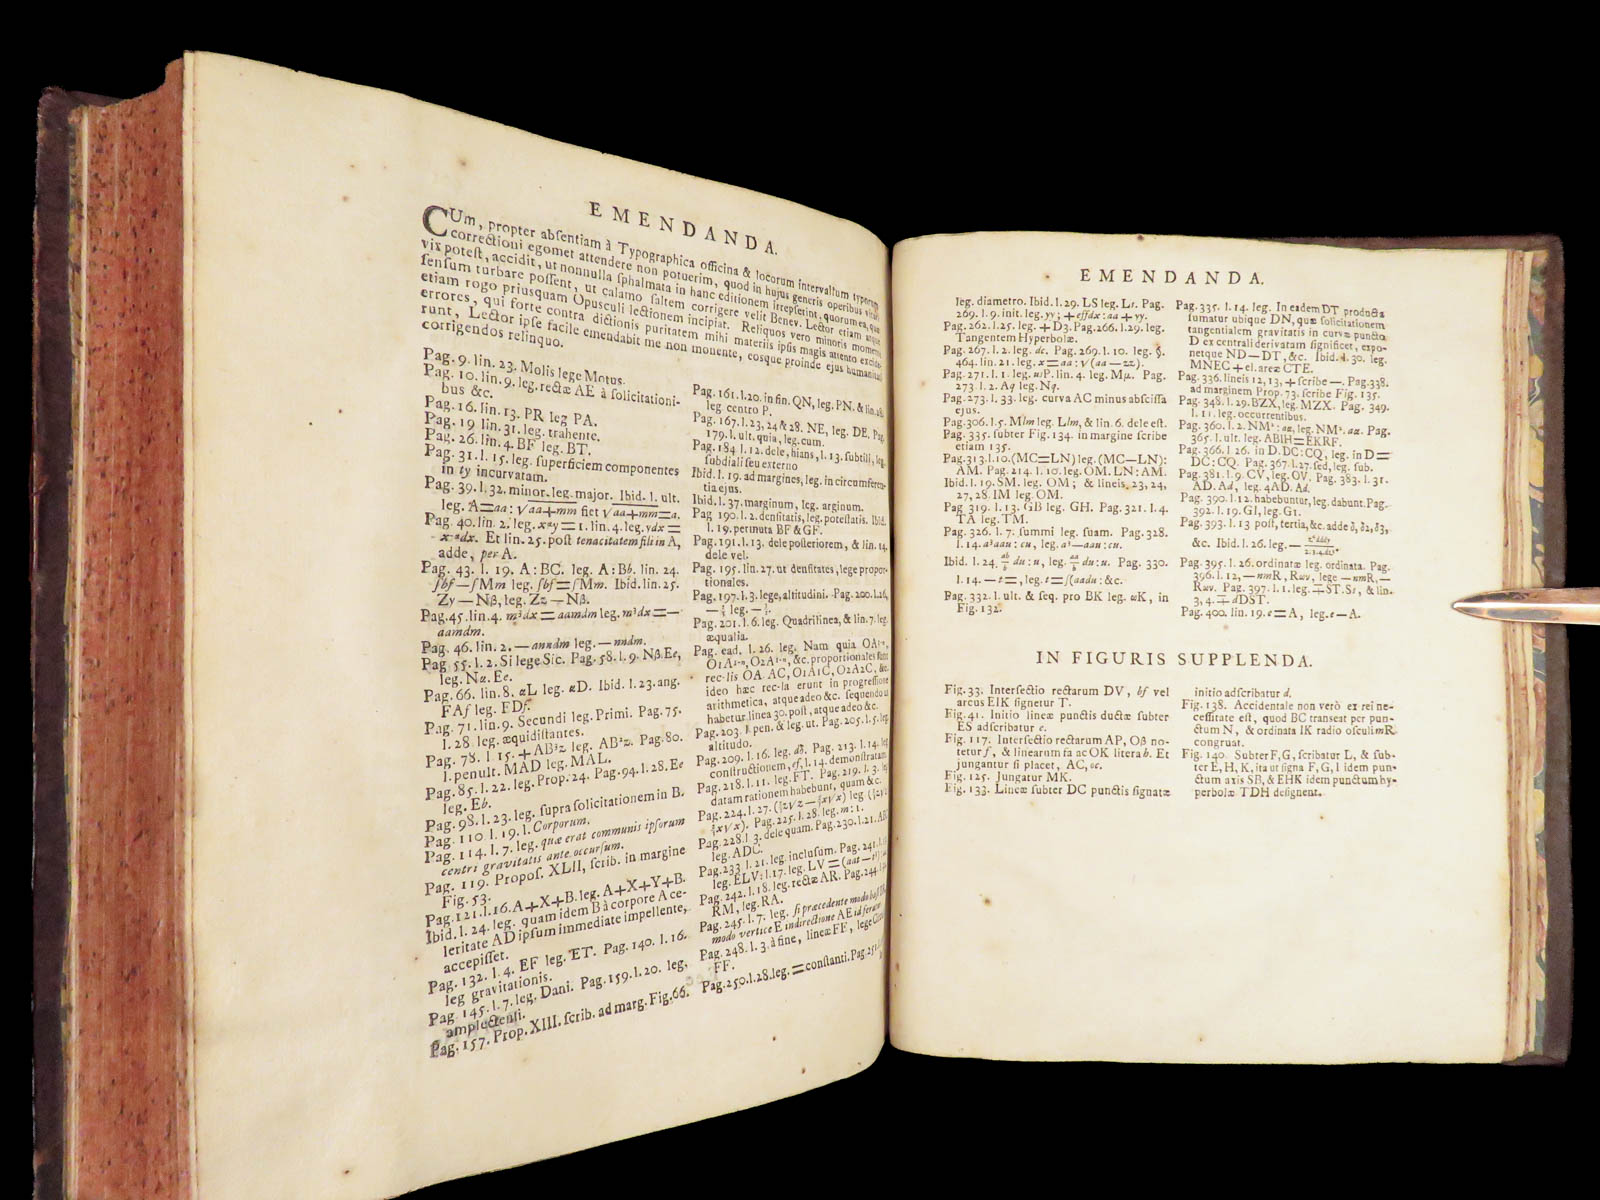 EMENDANDA.
CUm, propter absentiam à Typographica officina & locorum intervallum typorum
correctioni egomet attendere non potuerim, quod in hujus generis operibus vitari
vix potest, accidit, ut nonnulla sphalmata in hanc editionem irrepserint, quorum ea, quæ
sensum turbare possent, ut calamo saltem corrigere velit Benev. Lector etiam atque
etiam rogo priusquam Opusculi lectionem incipiat. Reliquos vero minoris momenti
errores, qui forte contra dictionis puritatem mihi materiis ipsis magis attento excide-
runt, Lector ipse facile emendabit me non monente, eosque proinde ejus humanitati
corrigendos relinquo.
Pag. 9. lin. 23. Molis lege Motus.
Pag. 10. lin. 9. leg. rectæ AE à solicitationi-
bus &c.
Pag. 16. lin. 13. PR leg PA.
Pag. 19 lin. 31. leg. trahente.
Pag. 26. lin. 4. BF leg. BT.
Pag. 31. l. 15. leg. superficiem componentes
in ty incurvatam.
Pag. 39. l. 32. minor. leg. major. Ibid. l. ult.
leg. A=aa: √aa+mm fiet √aa+mm=a.
Pag. 40. lin. 2. leg. xⁿy=1. lin. 4. leg. ydx=
x⁻ⁿdx. Et lin. 25. post tenacitatem fili in A,
adde, per A.
Pag. 43. l. 19. A: BC. leg. A: Bb. lin. 24.
ſbf—ſMm leg. ſbf=ſMm. Ibid. lin. 25.
Zy—Nβ, leg. Zz—Nβ.
Pag. 45. lin. 4. m³dx=aamdm leg. m³dx=—
aamdm.
Pag. 46. lin. 2. —anndm leg. —nndm.
Pag. 55. l. 2. Si lege Sic. Pag. 58. l. 9. Nβ Ee,
leg. Nα. Ee.
Pag. 66. lin. 8. αL leg. αD. Ibid. l. 23. ang.
FAf leg. FDf.
Pag. 71. lin. 9. Secundi leg. Primi. Pag. 75.
l. 28 leg. æquidistantes.
Pag. 78. l. 15. +AB²z leg. AB²z. Pag. 80.
l. penult. MAD leg. MAL.
Pag. 85. l. 22. leg. Prop. 24. Pag. 94. l. 28. Ee
leg. Eb.
Pag. 98. l. 23. leg. supra solicitationem in B.
Pag. 110. l. 19. l. Corporum.
Pag. 114. l. 7. leg. quæ erat communis ipsorum
centri gravitatis ante occursum.
Pag. 119. Propos. XLII, scrib. in margine
Fig. 53.
Pag. 121. l. 16. A+X+B. leg. A+X+Y+B.
Ibid. l. 24. leg. quam idem B à corpore A ce-
leritate AD ipsum immediate impellente,
accepisset.
Pag. 132. l. 4. EF leg. ET. Pag. 140. l. 16.
leg gravitationis.
Pag. 145. l. 7. leg. Dani. Pag. 159. l. 20. leg.
amplectenti.
Pag. 157. Prop. XIII. scrib. ad marg. Fig. 66.
Pag. 161. l. 20. in fin. QN, leg. PN. & lin.
leg. centro P.
Pag. 167. l. 23, 24 & 28. NE, leg. DE. Pag.
179. l. ult, quia, leg. cum.
Pag. 184 l. 12. dele, hians, l. 13. subtili, leg.
subdiali seu externo
Ibid. l. 19. ad margines, leg. in circumferen-
tia ejus.
Ibid. l. 37. marginum, leg. arginum.
Pag 190. l. 2. densitatis, leg. potestatis. Ibid.
l. 19. permuta BF & GF.
Pag. 191. l. 13. dele posteriorem, & lin. 14.
dele vel.
Pag. 195. lin. 27. ut densitates, lege propor-
tionales.
Pag. 197. l. 3. lege, altitudini. Pag. 200. l. 26,
Pag. 201. l. 6. leg. Quadrilinea, & lin. 7. leg.
æqualia.
Pag. ead. l. 26. leg. Nam quia
&c. proportionales sunt
rec-lis OA. AC, O1A1C, O2A2C, &c.
ideo hæc rec-la erunt in progressione
arithmetica, atque adeo &c. sequendo ut
habetur linea 30. post, atque adeo &c.
Pag. 203. l. pen. & leg. ut. Pag. 205. l. 5. leg.
altitudo.
Pag. 209. l. 16. leg. dβ. Pag. 213. l. 14. leg.
constructionem, ef. l. 14. demonstratam
Pag. 218. l. 11. leg. FT. Pag. 219. l. 3. leg.
datam rationem habebunt, quam &c.
Pag. 224. l. 27.
Pag. 225. l. 28. leg. m: 1.
Pag. 228. l. 3. dele quam. Pag. 230. l. 21.
leg. ADC.
Pag. 233 l. 21. leg. inclusum. Pag. 241.
leg. ELV: l. 17. leg. LV=
Pag. 242. l. 18. leg. rectæ AR. Pag. 244.
RM, leg. RA.
Pag. 245. l. 7. leg. si præcedente modo
modo vertice E in directione AE id
Pag. 248. l. 3. à fine, lineæ FF, lege
FF.
Pag. 250. l. 28. leg. =constanti. Pag. 251.
EMENDANDA.
leg. diametro. Ibid. l. 29. LS leg. Ls. Pag.
269. l. 9. init. leg. yy; +effdx: aa+yy.
Pag. 262. l. 25. leg. +D3. Pag. 266. l. 29. leg.
Tangentem Hyperbolæ.
Pag. 267. l. 2. leg. dc. Pag. 269. l. 10. leg. §.
464. lin. 21. leg. x=aa: √(aa—zz).
Pag. 271. l. 1. leg. uP. lin. 4. leg. Mμ. Pag.
273. l. 2. Aq leg. Nq.
Pag. 273. l. 33. leg. curva AC minus abscissa
ejus.
Pag. 306. l. 5. Mlm leg. Llm, & lin. 6. dele est.
Pag. 335. subter Fig. 134. in margine scribe
etiam 135.
Pag. 313. l. 10. (MC=LN) leg. (MC—LN):
AM. Pag. 214. l. 10. leg. OM. LN: AM.
Ibid. l. 19. SM. leg. OM; & lineis 23, 24,
27, 28. IM leg. OM.
Pag 319. l. 13. GB leg. GH. Pag. 321. l. 4.
TA leg. TM.
Pag. 326. l. 7. summi leg. suam. Pag. 328.
l. 14. a³aau: cu, leg. a³—aau: cu.
Ibid. l. 24. ab/b du: u, leg. aa/b du: u. Pag. 330.
l. 14. —t=, leg. t=ſ(aadu: &c.
Pag. 332. l. ult. & seq. pro BK leg. αK, in
Fig. 132.
Pag. 335. l. 14. leg. In eadem DT producta
sumatur ubique DN, quæ solicitationem
tangentialem gravitatis in curvæ puncto
D ex centrali derivatam significet, expo-
netque ND—DT, &c. Ibid. l. 30. leg.
MNEC+el. areæ CTE.
Pag. 336. lineis 12, 13, + scribe —. Pag. 338.
ad marginem Prop. 73. scribe Fig. 135.
Pag. 348. l. 29. BZX, leg. MZX. Pag. 349.
l. 11. leg. occurrentibus.
Pag. 360. l. 2. NM²: aα, leg. NM². aα. Pag.
365. l. ult. leg. ABIH=EKRF.
Pag. 366. l. 26. in D. DC: CQ, leg. in D=
DC: CQ. Pag. 367. l. 27. sed, leg. sub.
Pag. 381. l. 9. CV, leg. OV. Pag. 383. l. 31.
AD. Ad, leg. 4AD. Ad.
Pag. 390. l. 12. habebuntur, leg. dabunt. Pag.
392. l. 19. GI, leg. G1.
Pag. 393. l. 13 post, tertia, &c. adde δ, δ2, δ3,
&c. Ibid. l. 26. leg. —
Pag. 395. l. 26. ordinatæ leg. ordinata. Pag.
396. l. 12, —nmR, Ruv, lege —nmR,—
Ruv. Pag. 397. l. 1. leg. ∓ST. Ss, & lin.
3, 4. ∓dDST.
Pag. 400. lin. 19. e=A, leg. e—A.
IN FIGURIS SUPPLENDA.
Fig. 33. Intersectio rectarum DV, bf vel
arcus EIK signetur T.
Fig. 41. Initio lineæ punctis ductæ subter
ES adscribatur e.
Fig. 117. Intersectio rectarum AP, Oβ no-
tetur f, & linearum fa ac OK litera b. Et
jungantur si placet, AC, oc.
Fig. 125. Jungatur MK.
Fig. 133. Lineæ subter DC punctis signatæ
initio adscribatur d.
Fig. 138. Accidentale non verò ex rei ne-
cessitate est, quod BC transeat per pun-
ctum N, & ordinata IK radio osculi mR
congruat.
Fig. 140. Subter F, G, scribatur L, & sub-
ter E, H, K, ita ut signa F, G, I idem pun-
ctum axis SB, & EHK idem punctum hy-
perbolæ TDH designent.